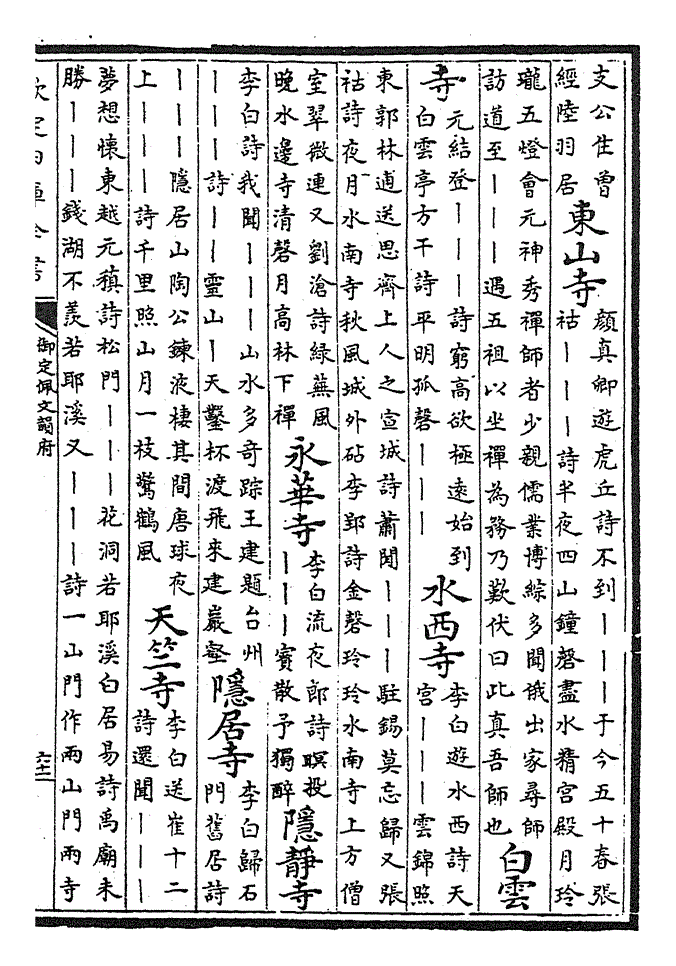 支公住曾
經陸羽居
東山寺
顔真卿遊虎丘詩不到丨丨丨于今五十春張
祜丨丨丨詩半夜四山鐘磬盡水精宮殿月玲
瓏五燈會元神秀禪師者少親儒業博綜多聞俄出家尋師
訪道至丨丨丨遇五祖以坐禪為務乃歎伏曰此真吾師也
白雲
寺
元結登丨丨丨詩窮高欲極遠始到
白雲亭方干詩平明孤磬丨丨丨
水西寺
李白遊水西詩天
宮丨丨丨雲錦照
東郭林逋送思齊上人之宣城詩蕭閒丨丨丨駐錫莫忘歸又張
祜詩夜月水南寺秋風城外砧李郢詩金磬玲玲水南寺上方僧
室翠微連又劉滄詩綠蕪風
晚水邊寺清磬月高林下禪
永華寺
李白流夜郎詩暝投
丨丨丨賓散予獨醉
隱靜寺
李白詩我聞丨丨丨山水多奇踪王建題台州
丨丨丨詩丨丨靈山丨天鑿杯渡飛來建巖壑
隱居寺
李白歸石
門舊居詩
丨丨丨隱居山陶公鍊液棲其間唐球夜
上丨丨丨詩千里照山月一枝驚鶴風
天竺寺
李白送崔十二
詩還聞丨丨丨
夢想懷東越元稹詩松門丨丨丨花洞若耶溪白居易詩禹廟未
勝丨丨丨錢湖不羨若耶溪又丨丨丨詩一山門作兩山門兩寺
欽定四庫全書
御定佩文韻府
六十二